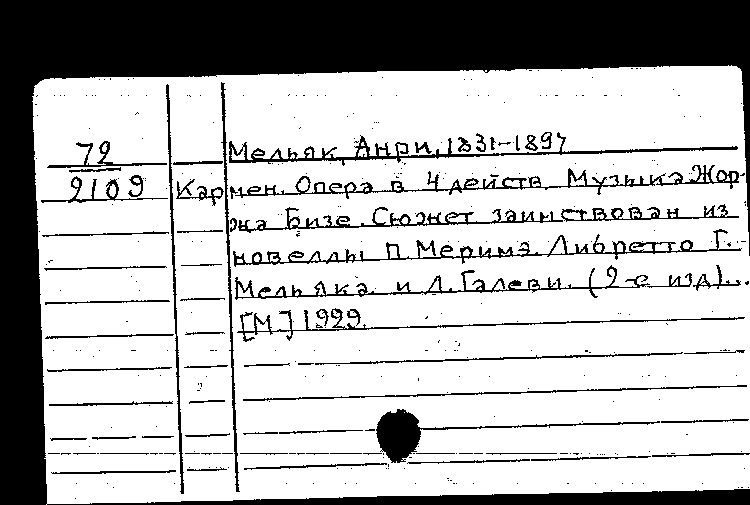 72
Мельяк, Анри, 1831-1897
2109
Кармен. Опера в 4 действ. Музыка Жор-
жа Бизе. Сюжет заимствован из
новеллы П. Меримэ. Либретто Г.
Мельяка и Л. Галеви. (2-е изд)...
[М.] 1929.